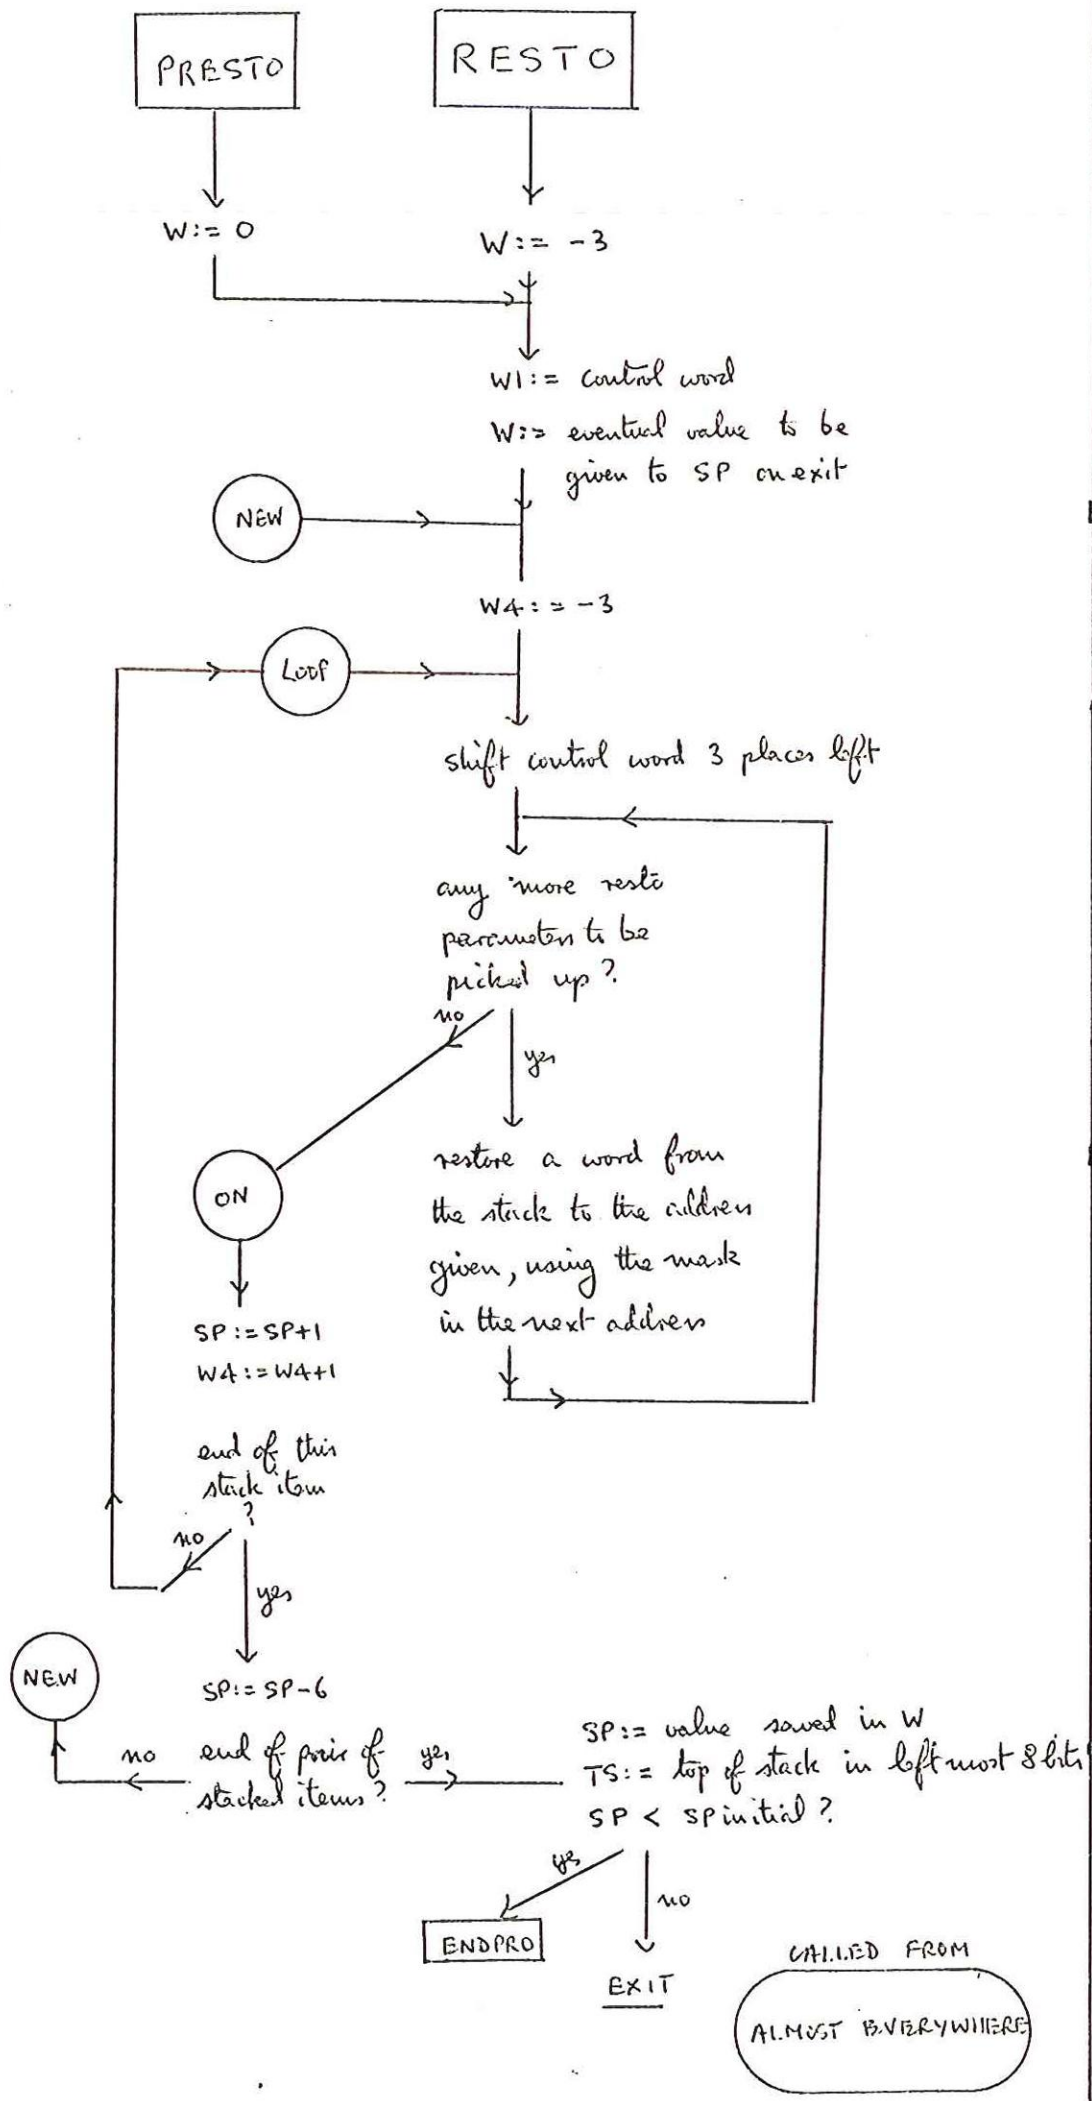 PRESTO
RESTO
W:= 0
W:= -3
W1:= control word
W:= eventual value to be
given to SP on exit
NEW
W4:= -3
LOOP
shift control word 3 places left
any more resto
parameters to be
picked up?
no
yes
ON
restore a word from
the stack to the address
given, using the mask
in the next address
SP:=SP+1
W4:=W4+1
end of this
stack item
?
no
yes
NEW
SP:= SP-6
no
end of pair of
stacked items?
yes
SP:= value saved in W
TS:= top of stack in leftmost 8 bits
SP < SP initial?
yes
no
ENDPRO
EXIT
CALLED FROM
ALMOST EVERYWHERE